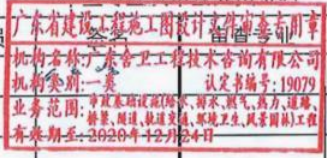 广东省建设工程施工图设计文件审查专用章
机构名称:广东善卫工程技术咨询有限公司
机构类别:一类 认定书编号:19079
业务范围:市政基础设施(给水、排水、燃气、热力、道路、
桥梁、隧道、轨道交通、环境卫生、风景园林)工程
有效期至:2020年12月24日